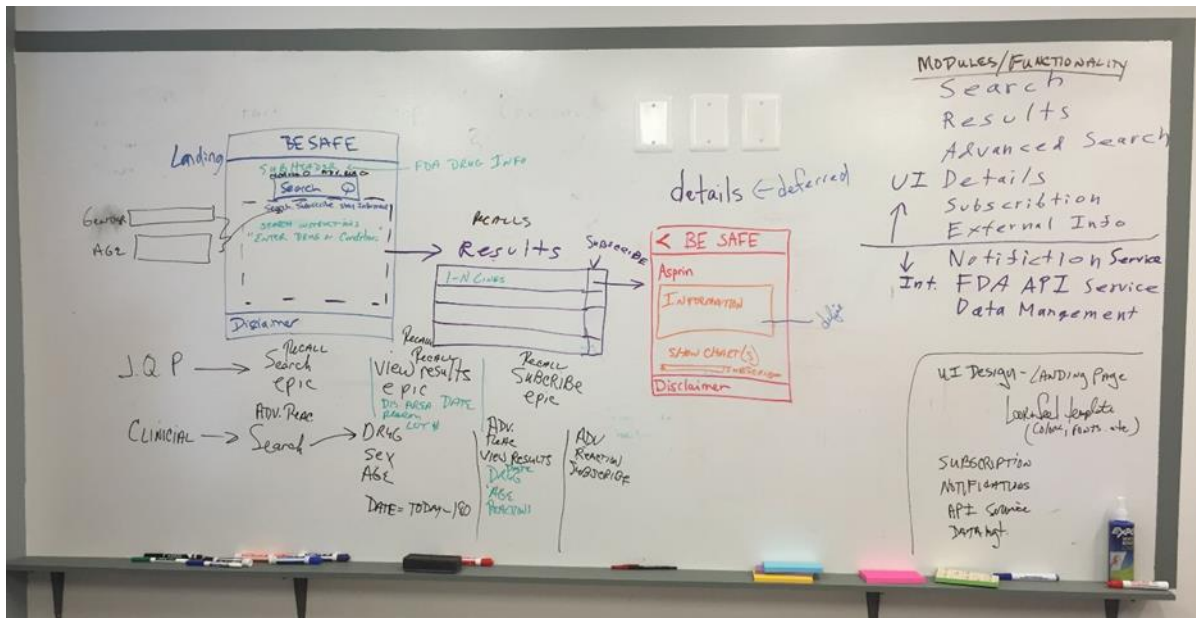 BESAFE
Landing
SUBHEADER
FDA DRUG INFO
Search
SEARCH INSTRUCTIONS
"ENTER DRUG or Condition"
GENDER
AGE
Disclaimer
RECALLS
Results
SUBSCRIBE
1-N LINES
details ← deferred
< BE SAFE
Asprin
INFORMATION
SHOW CHART(S)
Disclaimer
J.Q.P →
RECALL
Search
epic
RECALL
RECALL
view results
epic
DIS. AREA DATE
REASON
LOT #
RECALL
SUBCRIBE
epic
CLINICIAL →
ADV. REAC
Search
DRUG
SEX
AGE
DATE = TODAY-180
ADV.
REAC
VIEW RESULTS
DRUG
AGE
REACTIONS
ADV
REACTION
SUBSCRIBE
MODULES/FUNCTIONALITY
Search
Results
Advanced Search
UI Details
Subscribtion
External Info
Notifiction Service
Int. FDA API Service
Data Mangement
UI DESIGN - LANDING PAGE
Look+feel template
(Colors, FONTS. etc.)
SUBSCRIPTION
NOTIFICATIONS
API Service
DATA Mgt.
EXPO